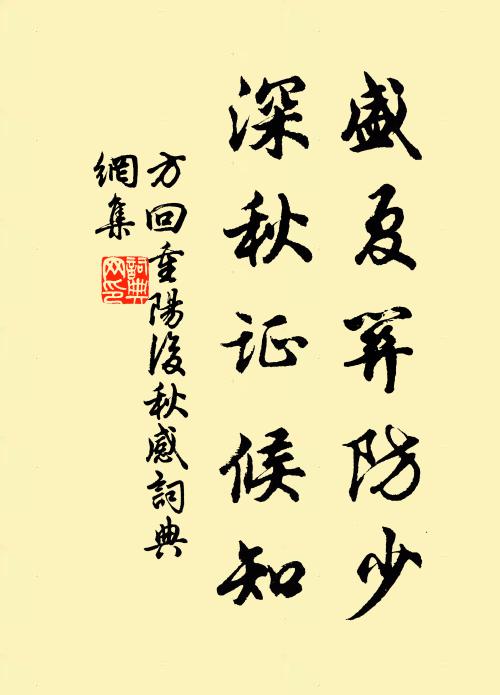 盛夏關防少
深秋证候知
方回重陽後秋感詞典
網集
詞典
网印